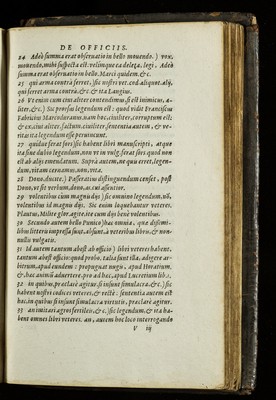 DE OFFICIIS.
24 Adeò summa erat obseruatio in bello mouendo. ) vox,
mouendo, mihi suspecta est: velimque ea deleta, legi. Adeò
summa erat obseruatio in bello. Marci quidem. &c.
25 qui arma contrà ferret. )sic nostri vet. cod. aliquot. alij,
qui ferret arma contra. &c & ita Langius.
26 Vt enim cum ciue aliter contendimus, si est inimicus, a-
liter. &c.) Sic prorsus legendum est: quod vidit Franciscus
Fabricius Marcoduranus. nam hoc, ciuiliter, corruptum est:
& ex, ciui aliter, factum, ciuiliter. sententia autem, & ve-
ritas ita legendum esse peruincunt.
27 quidue ferat fors)sic habent libri manuscripti. atque
ita sine dubio legendum. non vt in vulg. ferat fors. quod non
est ab alijs emendatum. Supra autem, ne quu erret, legen-
dum, vitam cernamus, non, vita.
28 Dono. ducite.) Passeratius distinguendum censet, post
Dono, vt sit verbum, dono, as, cui assentior.
29 volentibus cum magnis dijs) sic omnino legendum. vel,
volentibus id magnis dijs. Sic enim loquebantur veteres.
Plantus, Milite glor. agite, ite cum dijs benè volentibus.
30 Secundo autem bello Punico )hac omnia, quæ dißimi-
libus litteris impressa sunt, absunt, à veteribus libris, & non-
nullis vulgatis.
31 Id autem tantum abest ab officio ) libri veteres habent,
tantum abest officio: quod probo. talia sunt illa, adigere ar-
bitrum, apud eundem : propugnat nugis, apud Horatium,
& , hac animū aduertere, pro ad hac, apud Lucretium lib.1.
32 in quibus, præclarè agitur, si insunt simulacra. &c.) sic
habent nostri codices veteres, & rectè : sententia autem est
hæc. in quibus si insunt simulacra virtutis, præclarè agitur.
33 an imitari agros fertiles. &c. )sic legendum. & ita ha-
bent omnes libri veteres. an, autem hoc loco interrogando
V iij